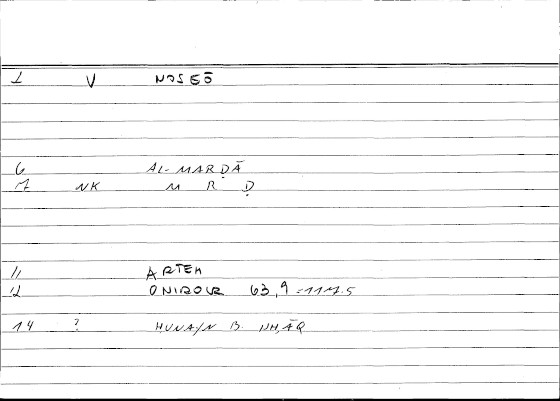 1 V NOSEŌ
6 AL-MARḌĀ
7 NK M R Ḍ
11 ARTEM
12 ONIROCR 63,9 = 117.5
14 ? HUNAYN B. ISHĀQ